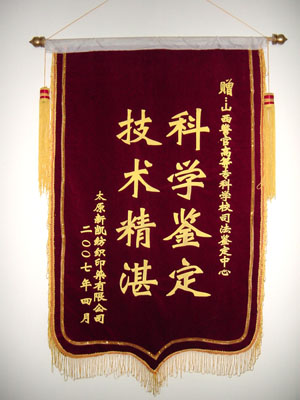 赠:山西警官高等专科学校司法鉴定中心
科学鉴定
技术精湛
太原新凯纺织印染有限公司
二〇〇七年四月